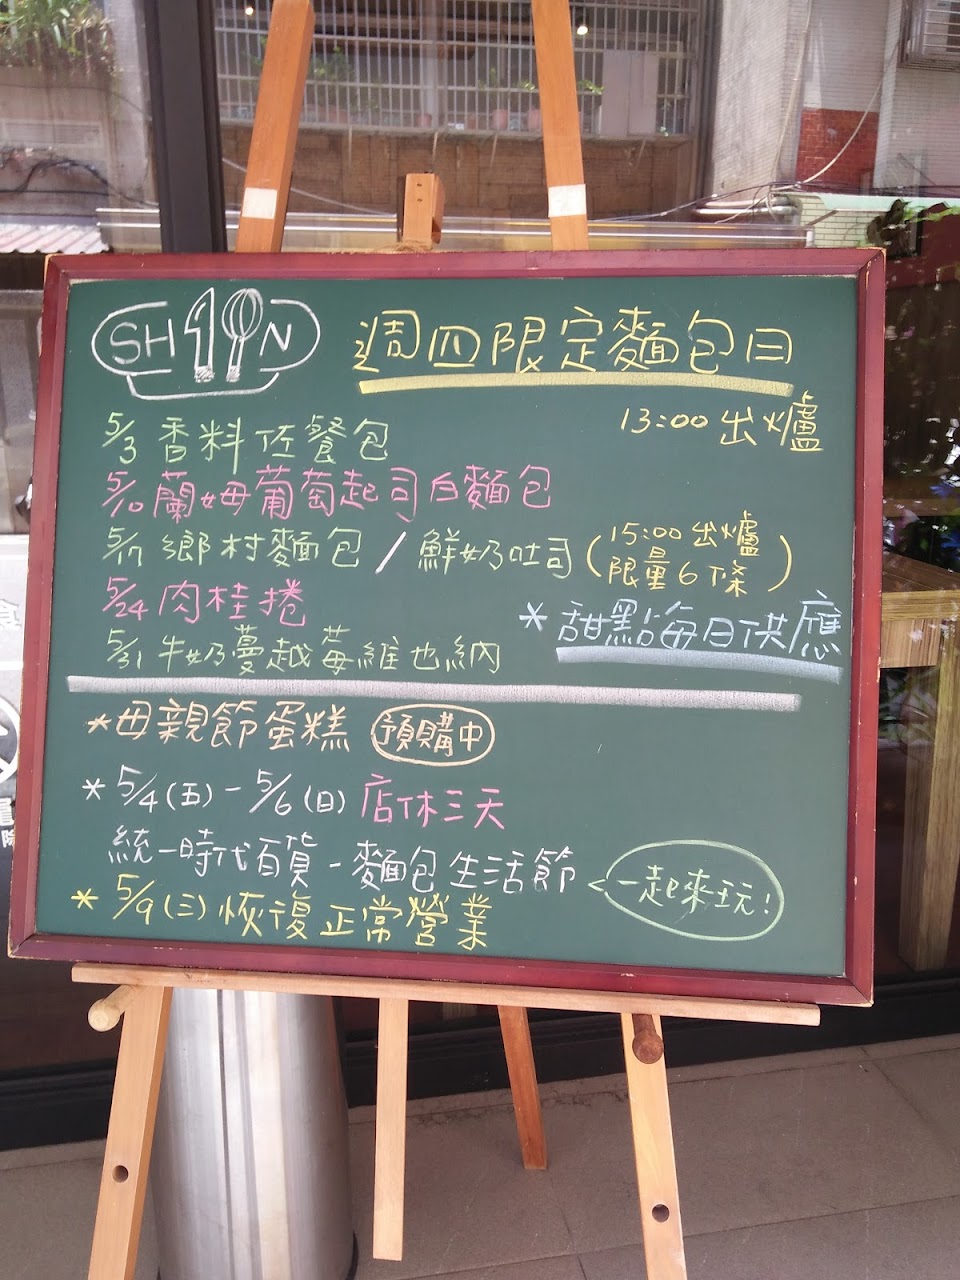 SH N
週四限定麵包日
13:00 出爐
5/3 香料佐餐包
5/10 蘭姆葡萄起司白麵包
5/17 鄉村麵包 / 鮮奶吐司 (15:00 出爐
限量 6 條)
5/24 肉桂捲
＊甜點每日供應
5/31 牛奶蔓越莓維也納
＊母親節蛋糕 預購中
＊5/4(五)-5/6(日) 店休三天
統一時代百貨-麵包生活節
一起來玩！
＊5/9(三)恢復正常營業